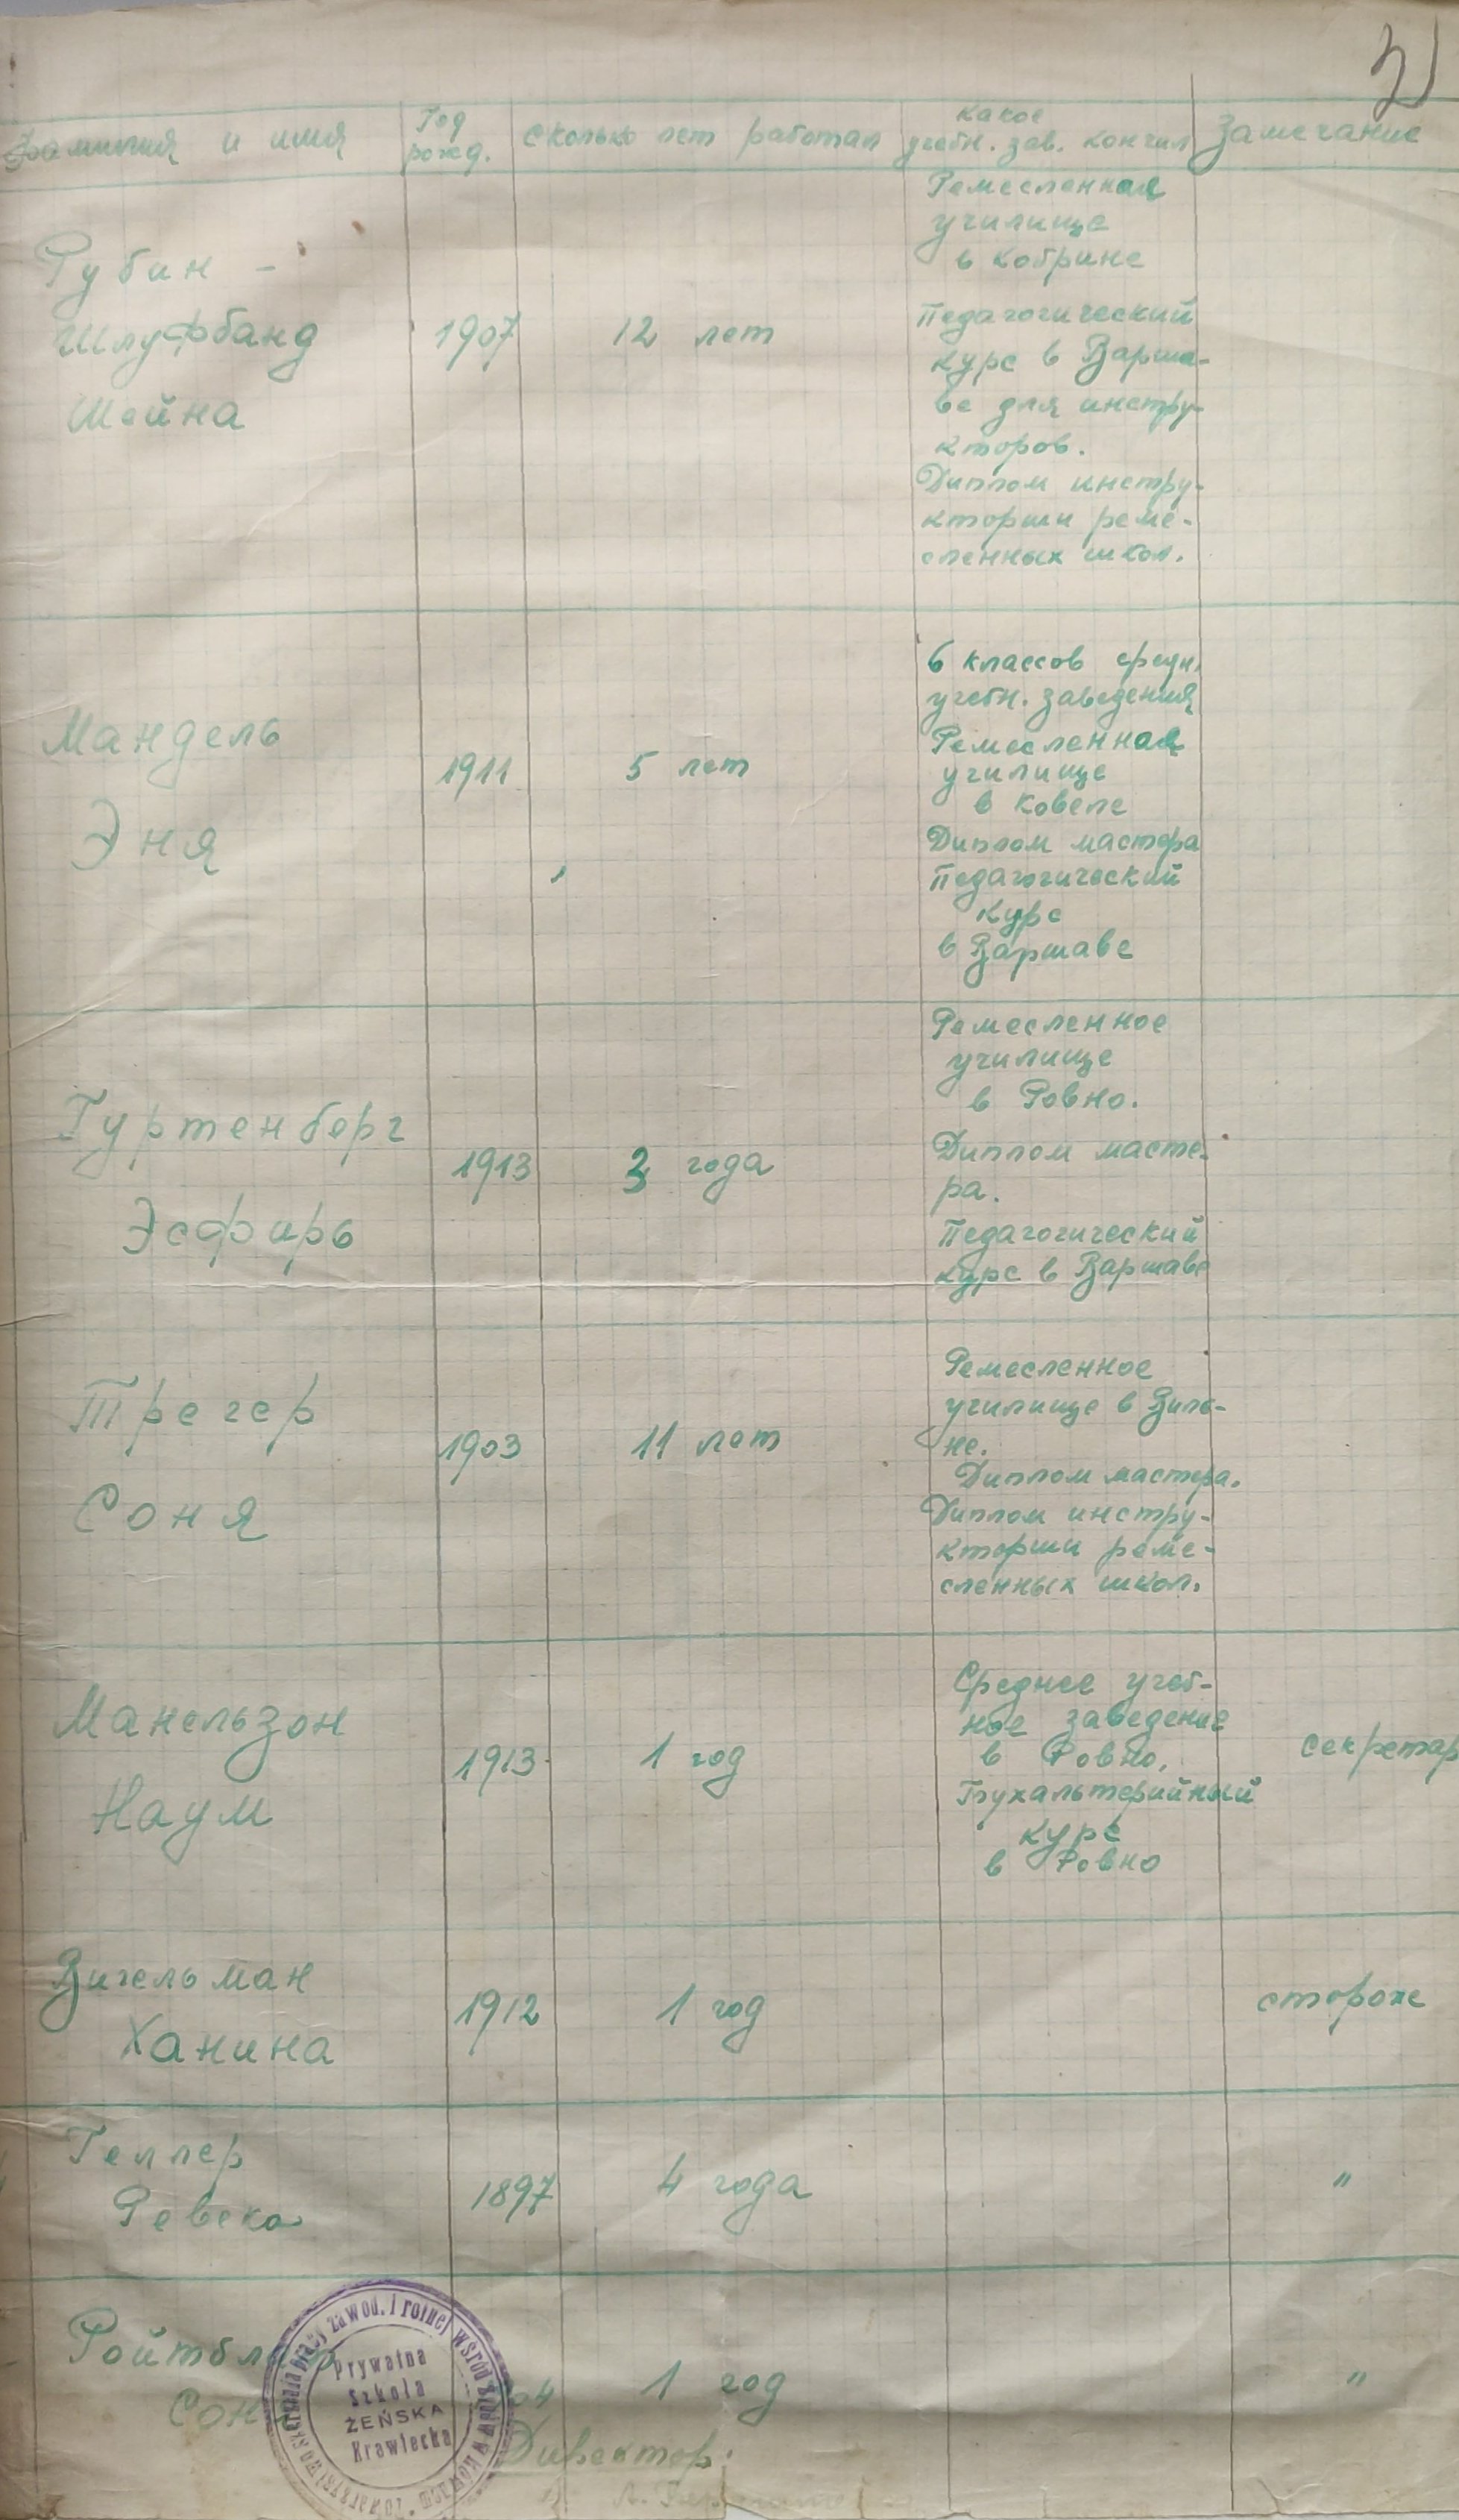 Фамилия и имя
Год рожд.
Сколько лет работал
какое
учебн. зав. кончил
Замечание
Рубин -
Шлуфбанд
Шейна
1907
12 лет
Ремесленная
училище
в Кобрине
Педагогический
курс в Варша-
ве для инстру-
кторов.
Диплом инстру-
кторши реме-
сленных школ.
Мандель
Эня
1911
5 лет
6 классов средн.
учебн. заведения
Ремесленная
училище
в Ковеле
Диплом мастера
Педагогический
курс
в Варшаве
Гуртенберг
Эсфирь
1913
3 года
Ремесленное
училище
в Ровно.
Диплом масте-
ра.
Педагогический
курс в Варшаве
Трегер
Соня
1903
11 лет
Ремесленное
училище в Виль-
не.
Диплом мастера.
Диплом инстру-
кторши реме-
сленных школ.
Манельзон
Наум
1913
1 год
Среднее учеб-
ное заведение
в Ровно,
Бухальтерийный
курс
в Ровно
секретар
Вигельман
Ханина
1912
1 год
сторож
Геллер
Ревека
1897
4 года
"
Ройтбл
Соня
04
1 год
"
zawod. i rolnej wśród Żydów w
Prywatna
Szkoła
ŻEŃSKA
Krawiecka
Директор: